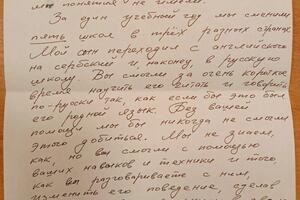 мы понятия не имели.
За один учебный год мы сменили
пять школ в трёх разных странах.
Мой сын переходил с английского
на сербский и, наконец, в русскую
школу. Вы смогли за очень короткое
время научить его читать и говорить
по-русски так, как если бы это был
его родной язык. Без вашей
помощи мы бы никогда не смогли
этого добиться. Мы не знаем,
как, но вы смогли с помощью
ваших навыков и техники и того,
как вы разговариваете с ним,
изменить его поведение, сделав